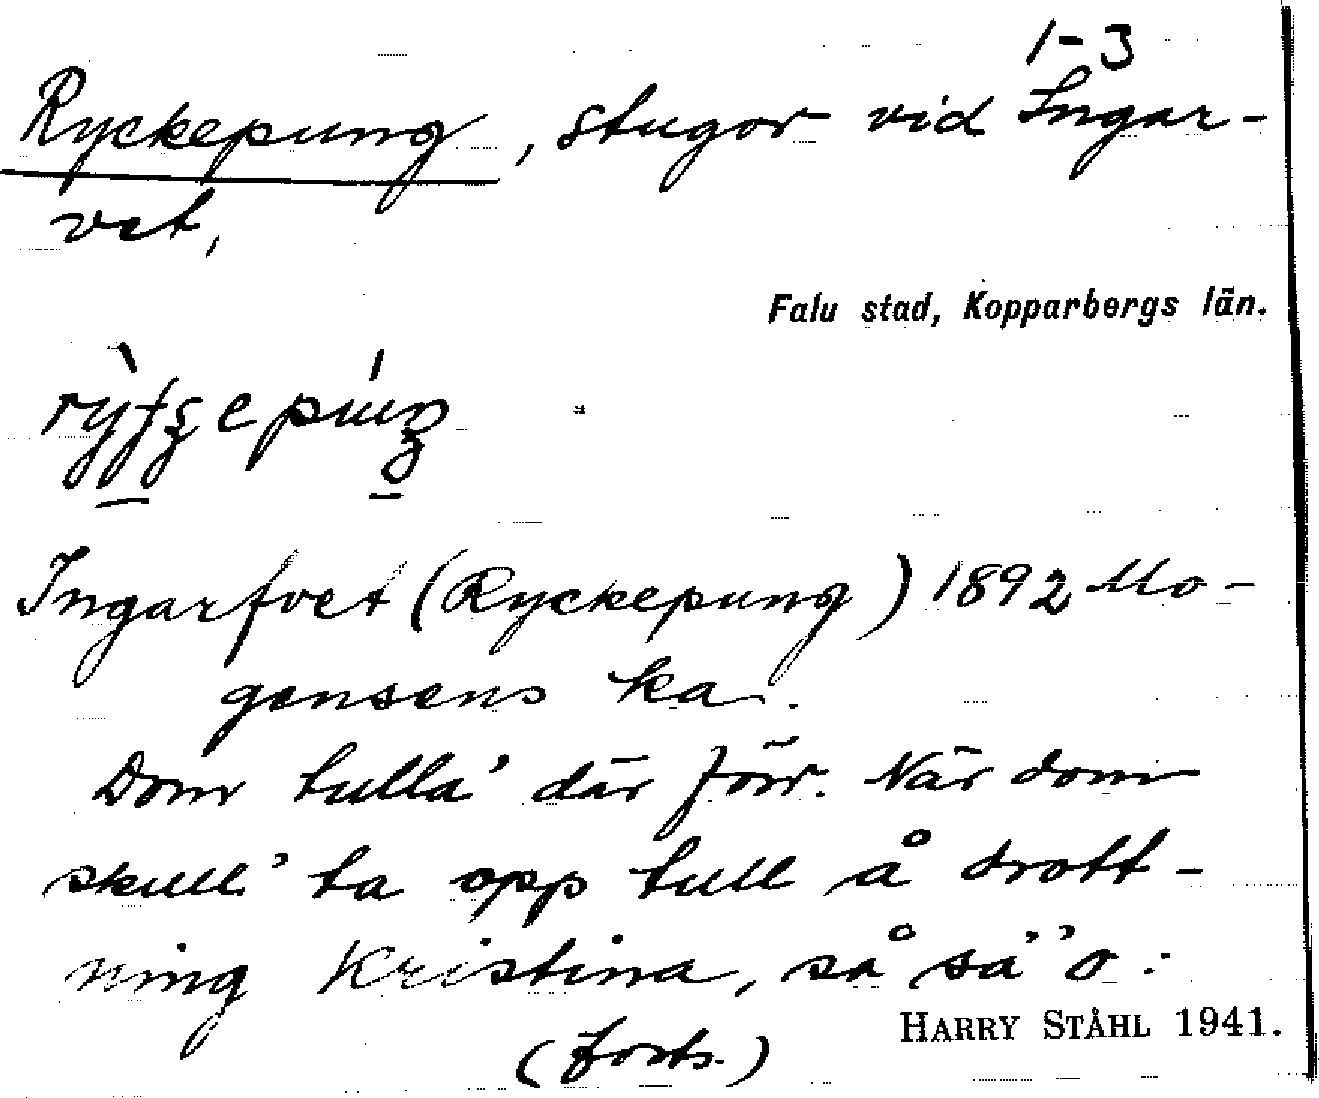 1-3
Ryckepung, stugor vid Ingar-
vet,
Falu stad, Kopparbergs län.
Ingarfvet (Ryckepung) 1892 Mo-
gensens ka.
Dom tulla' där förr. När dom
skull' ta opp tull å drott-
ning Kristina, så sä' o:
(forts.)
HARRY STÅHL 1941.